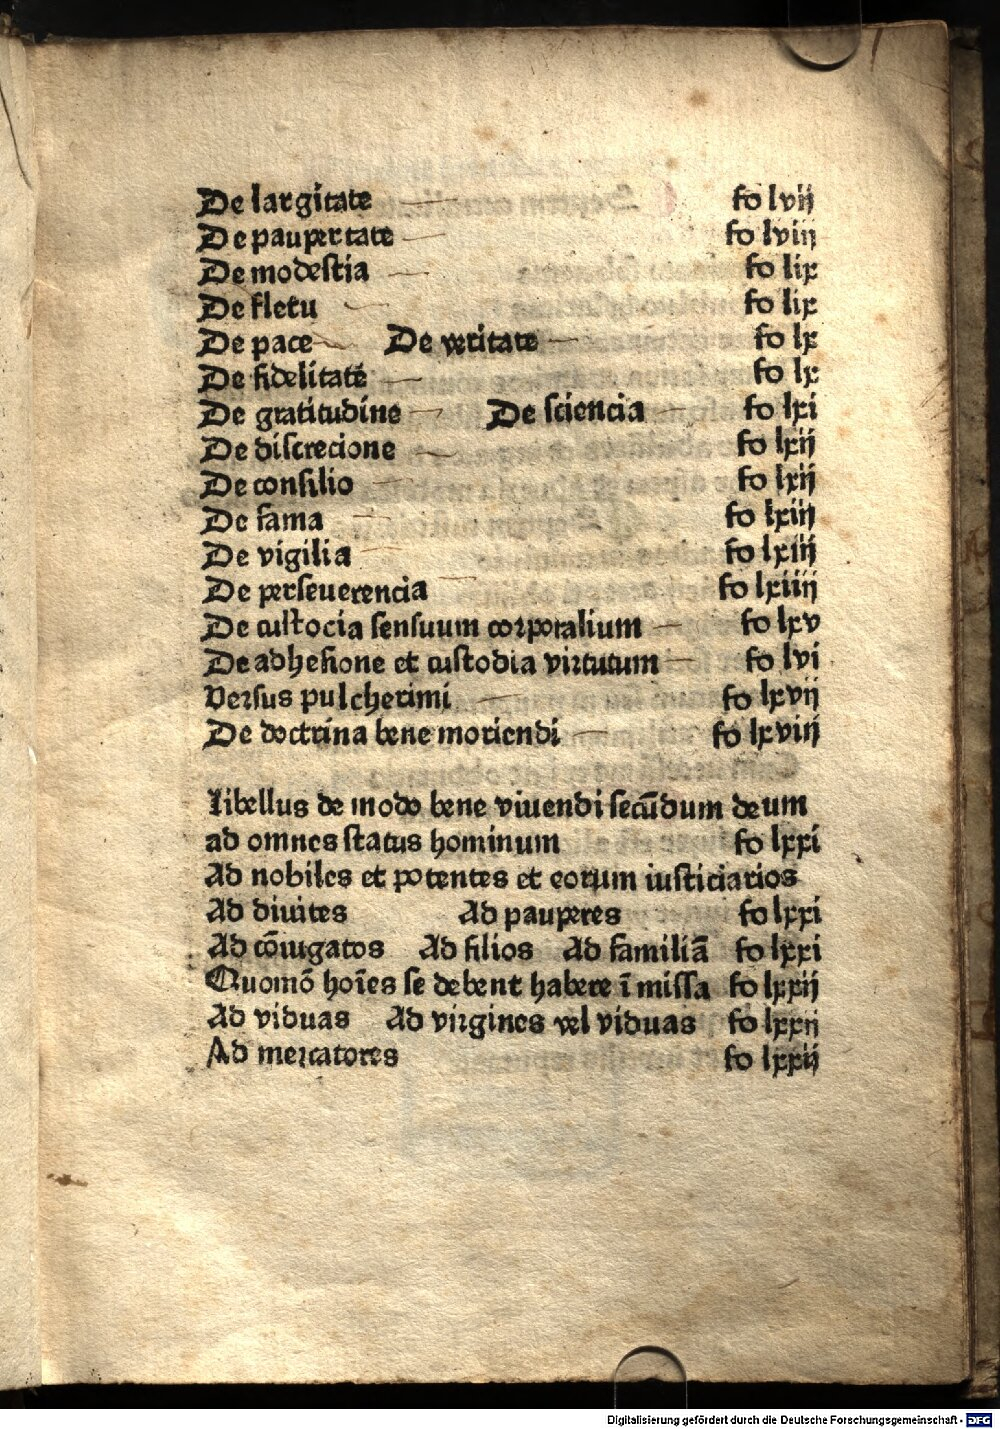 De largitate fo lvij
De paupertate fo lviij
De modestia fo lix
De fletu fo lix
De pace De veritate fo lx
De fidelitate fo lx
De gratitudine De sciencia fo lxi
De discrecione fo lxij
De consilio fo lxij
De fama fo lxiij
De vigilia fo lxiij
De perseuerencia fo lxiiij
De custocia sensuum corporalium fo lxv
De adhesione et custodia virtutum fo lvi
Versus pulcherimi fo lxvij
De doctrina bene moriendi fo lxviij
Libellus de modo bene viuendi secūdum deum
ad omnes status hominum fo lxxi
Ad nobiles et potentes et eorum iusticiarios
Ad diuites Ad pauperes fo lxxi
Ad cōiugatos Ad filios Ad familiā fo lxxi
Quomō hoīes se debent habere ī missa fo lxxij
Ad viduas Ad virgines vel viduas fo lxxij
Ad mercatores fo lxxij
Digitalisierung gefördert durch die Deutsche Forschungsgemeinschaft - DFG